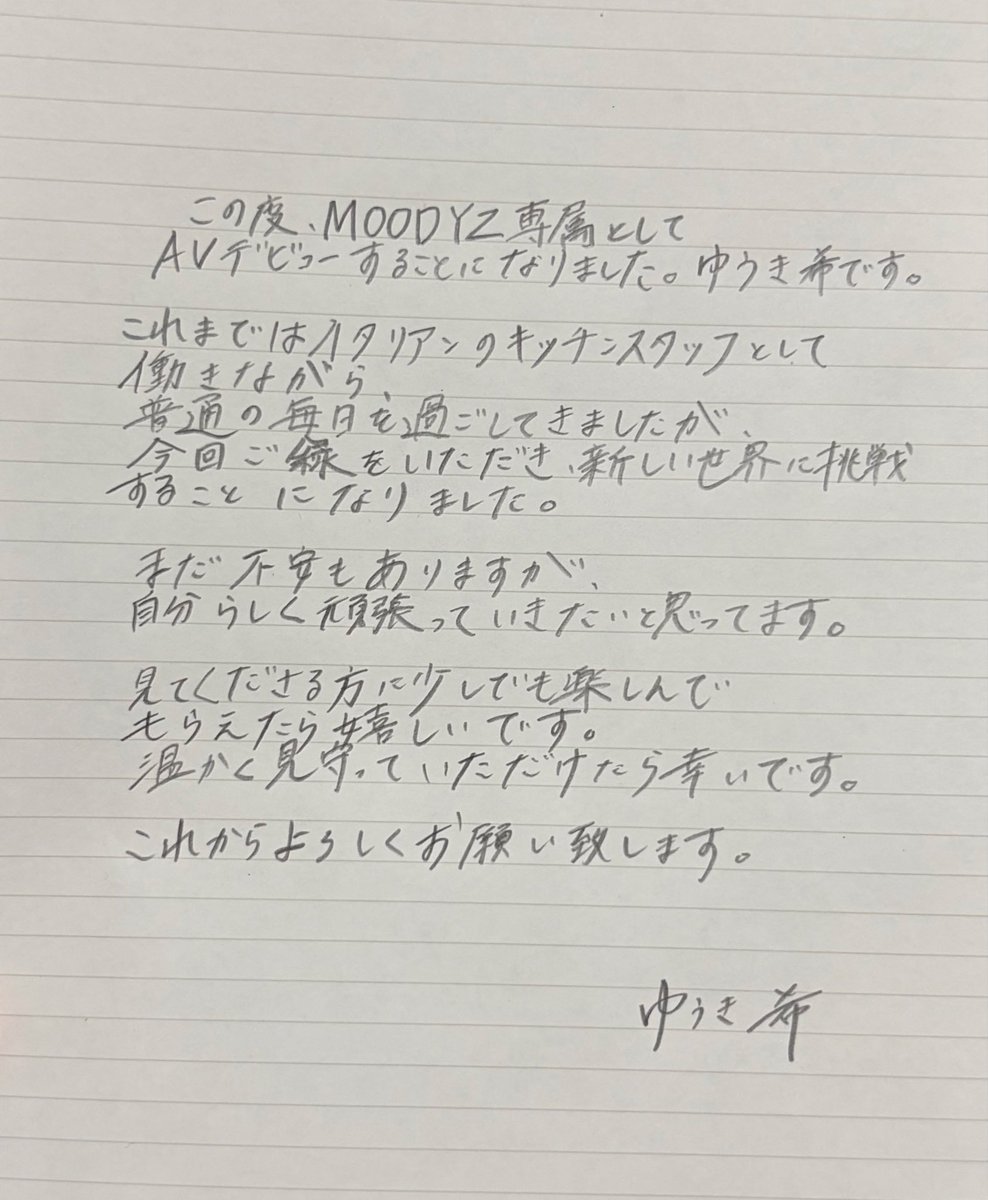 この度、MOODYZ専属として
AVデビューすることになりました。ゆうき希です。
これまではイタリアンのキッチンスタッフとして
働きながら、
普通の毎日を過ごしてきましたが、
今回ご縁をいただき、新しい世界に挑戦
することになりました。
まだ不安もありますが、
自分らしく頑張っていきたいと思ってます。
見てくださる方に少しでも楽しんで
もらえたら嬉しいです。
温かく見守っていただけたら幸いです。
これからよろしくお願い致します。
ゆうき希